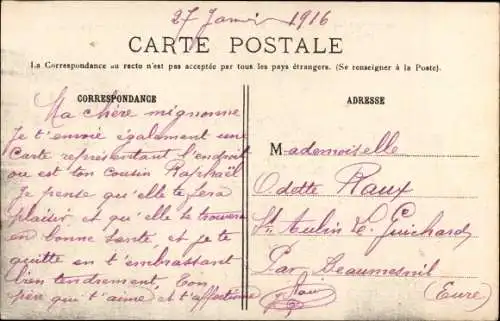 27 Janvier 1916
CARTE POSTALE
La Correspondance au recto n'est pas acceptée par tous les pays étrangers. (Se renseigner à la Poste).
CORRESPONDANCE
Ma chère mignonne
Je t'envoie également une
Carte représentant l'endroit
ou est ton Cousin Raphaël
Je pense qu'elle te fera
plaisir et qu'elle te trouvera
en bonne santé et je te
quitte en t'embrassant
bien tendrement, Ton
père qui t'aime et t'affectionne
Raux
ADRESSE
Mademoiselle
Odette Raux
St Aubin L. Guichard
Par Beaumesnil
(Eure)